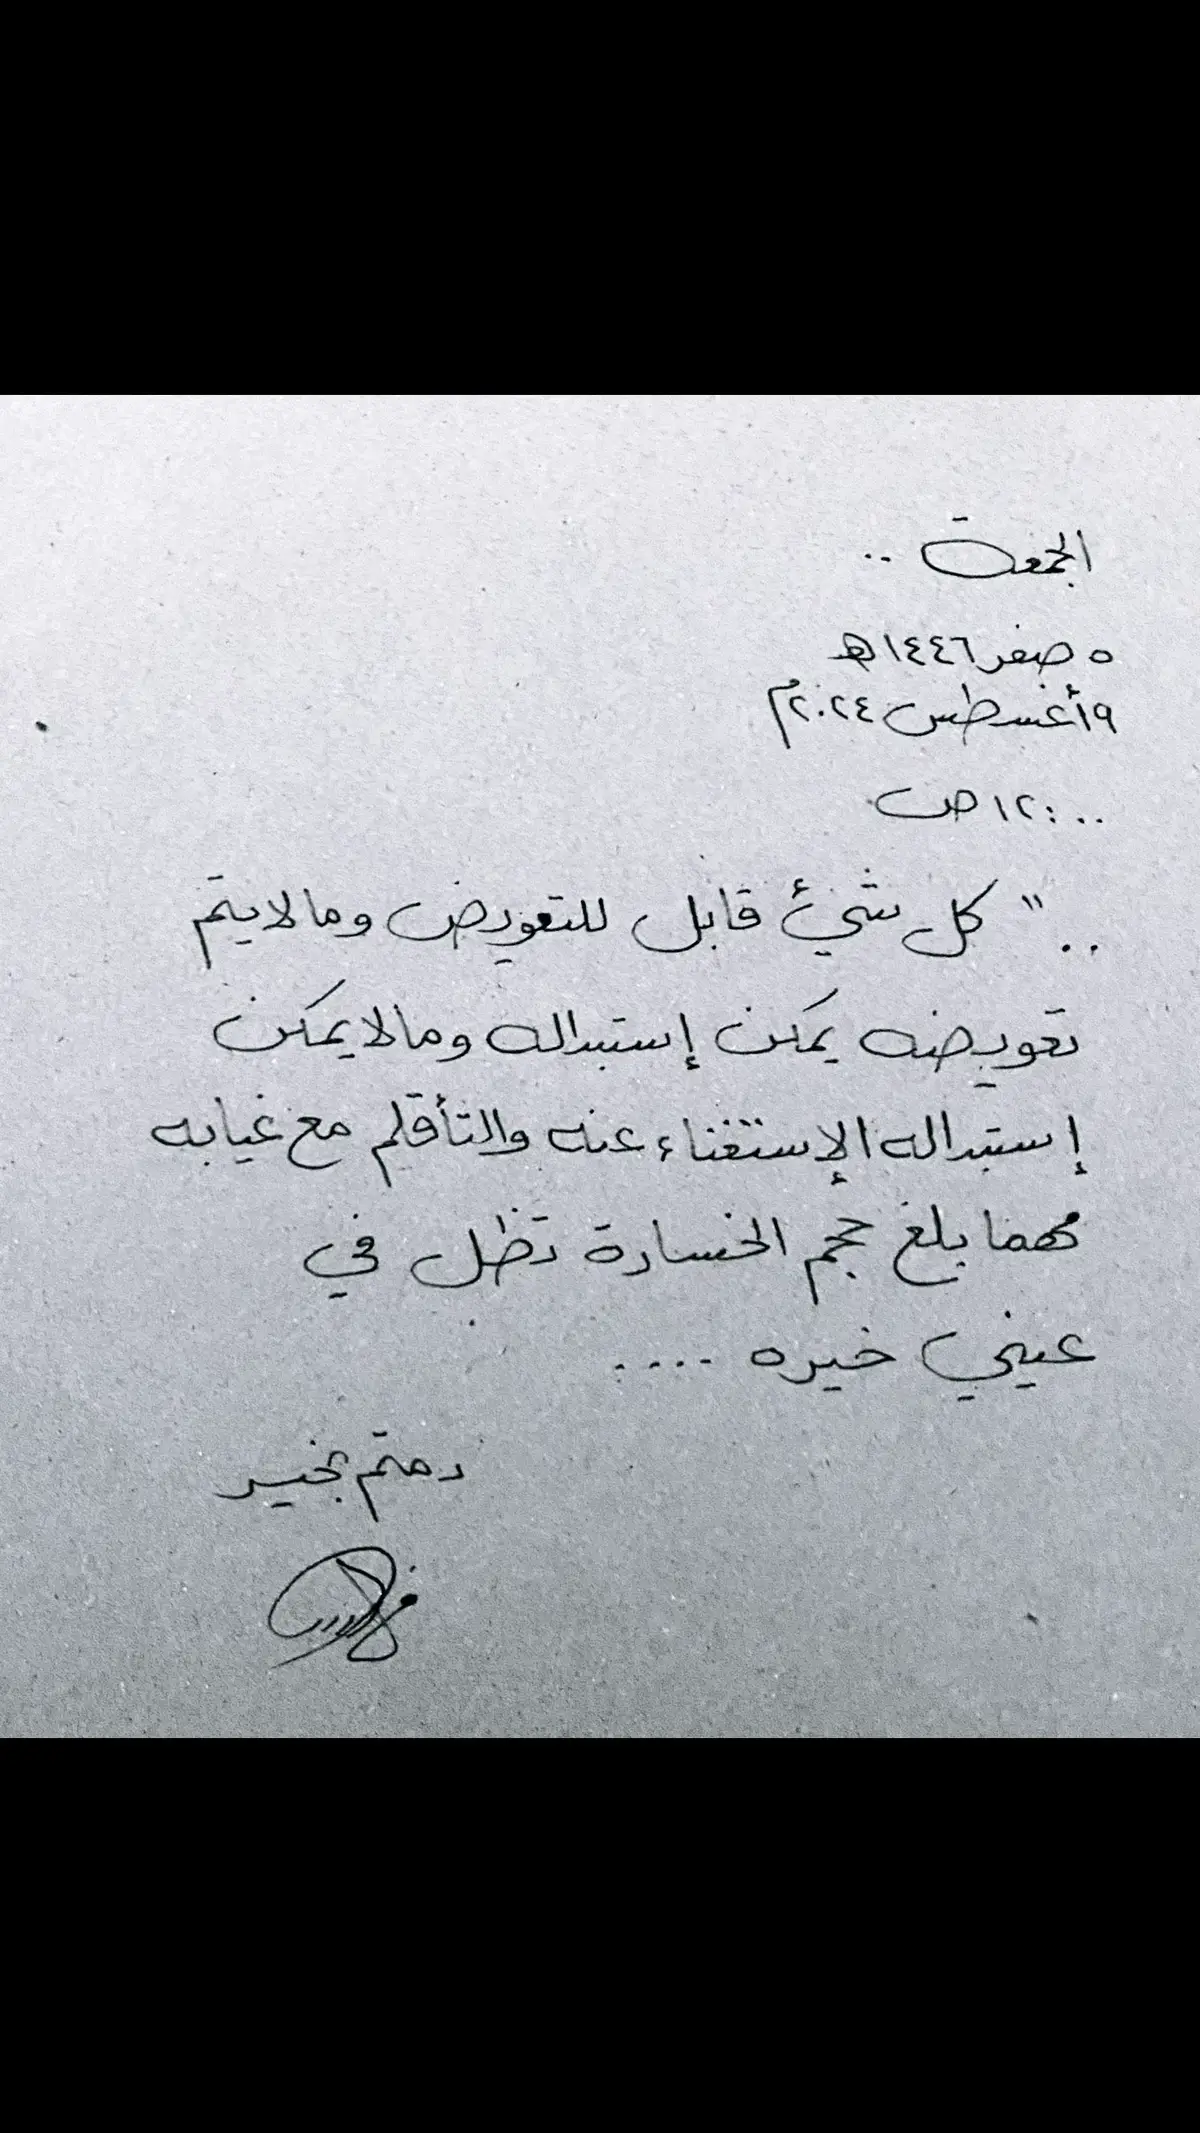 الجمعة ..
٥ صفر ١٤٤٦هـ
٩ أغسطس ٢٠٢٤م
١٢:٠٠ ص
.. " كل شيئ قابل للتعويض ومالايتم
تعويضه يمكن إستبداله ومالايمكن
إستبداله الإستغناء عنه والتأقلم مع غيابه
مهما بلغ حجم الخسارة تظل في
عيني خيره ....
دمتم بخير